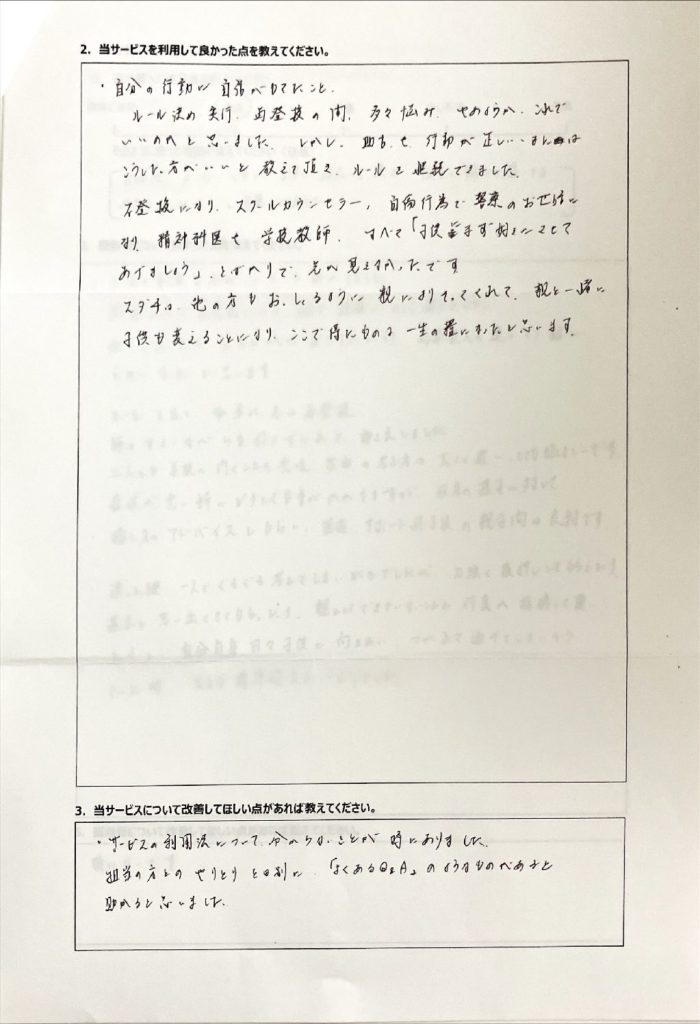 2. 当サービスを利用して良かった点を教えてください。
・自分の行動に自信がもてたこと。
ルール決め実行、再登校の間、多々悩み、やめようか、これで
いいのかと思いました。しかし、助言も、行動が正しい、または
こうした方がいいと教えて頂き、ルールを継続できました。
不登校になり、スクールカウンセラー、自傷行為で警察のお世話に
なり、精神科医も学校教師、すべて「子供
あげましょう」とばかりで、先が見えなかったです
スダチは、他の方もおっしゃるように親により て、親と一緒に
子供も変えることになり、ここで得たものは一生の糧になったと思います。
3. 当サービスについて改善してほしい点があれば教えてください。
・サービスの利用法について、分からないことが時にありました。
担当の方とのやりとりとは別に、「よくあるQ&A」のようなものがあると
助かると思いました。